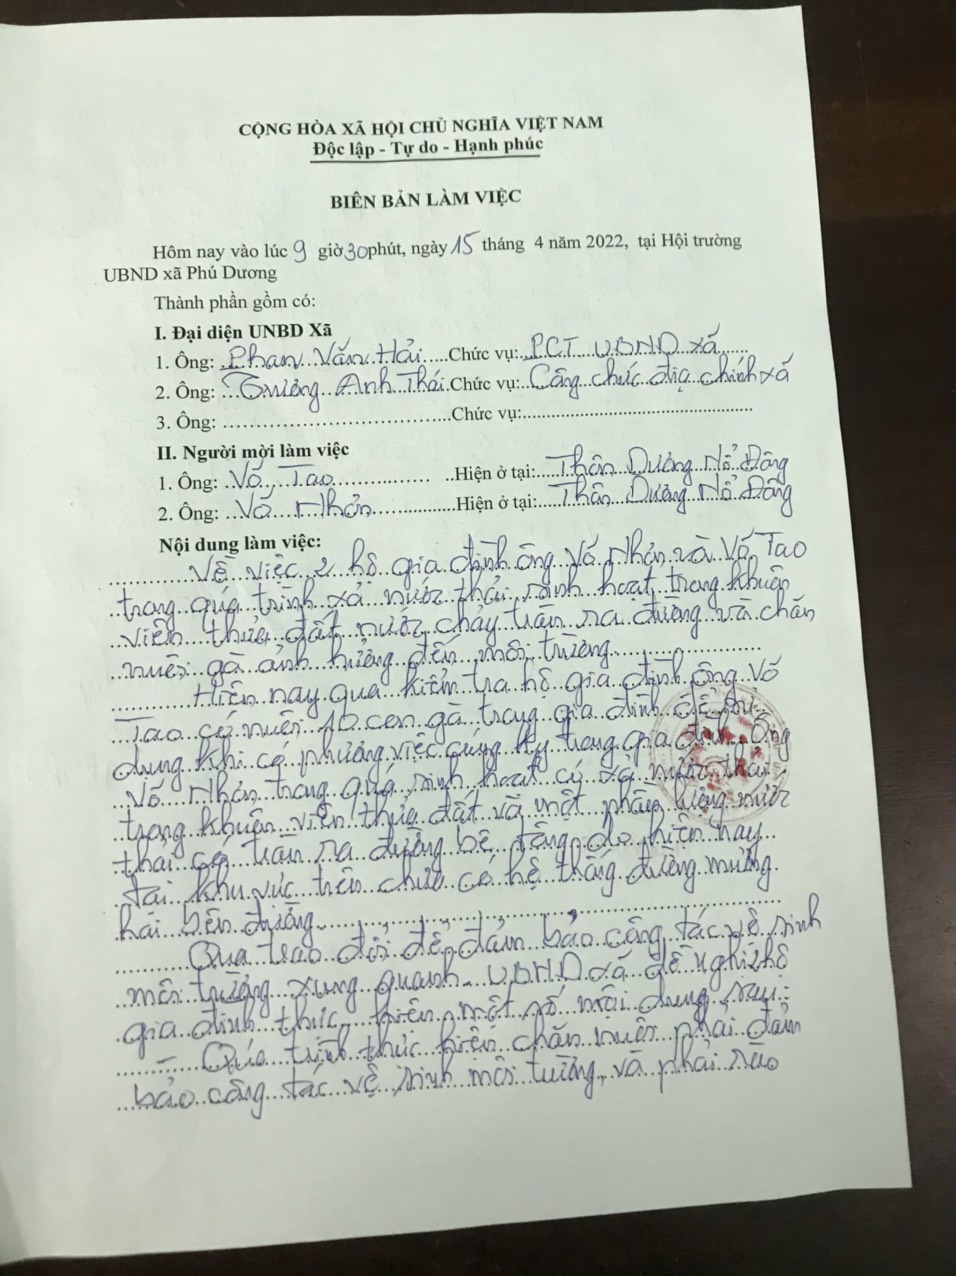 CỘNG HÒA XÃ HỘI CHỦ NGHĨA VIỆT NAM
Độc lập - Tự do - Hạnh phúc
BIÊN BẢN LÀM VIỆC
Hôm nay vào lúc 9 giờ 30 phút, ngày 15 tháng 4 năm 2022, tại Hội trường
UBND xã Phú Dương
Thành phần gồm có:
I. Đại diện UNBD Xã
1. Ông: Phan Văn Hải Chức vụ: PCT UBND xã
2. Ông: Trương Anh Thái Chức vụ: Công chức địa chính xã
3. Ông: Chức vụ:
II. Người mời làm việc
1. Ông: Võ Tao Hiện ở tại: Thôn Dương Nổ Đông
2. Ông: Võ Nhơn Hiện ở tại: Thôn Dương Nổ Đông
Nội dung làm việc:
Về việc 2 hộ gia đình ông Võ Nhơn và Võ Tao
trong quá trình xả nước thải sinh hoạt trong khuôn
viên thửa đất nước chảy tràn ra đường và chăn
nuôi gà ảnh hưởng đến môi trường.
Hiện nay qua kiểm tra hộ gia đình ông Võ
Tao có nuôi 10 con gà trong gia đình để
dụng khi có phương việc cúng kỵ trong gia đình. Ông
Võ Nhơn trong quá sinh hoạt có xả nước thải
trong khuôn viên thửa đất và một phần lượng nước
thải có tràn ra đường bê tông do hiện nay
tại khu vực trên chưa có hệ thống đường mương
hai bên đường.
Qua trao đổi để đảm bảo công tác vệ sinh
môi trường xung quanh UBND xã đề nghị 2 hộ
gia đình thực hiện một số nội dung sau:
- Quá trình thực hiện chăn nuôi phải đảm
bảo công tác vệ sinh môi trường, và phải rào